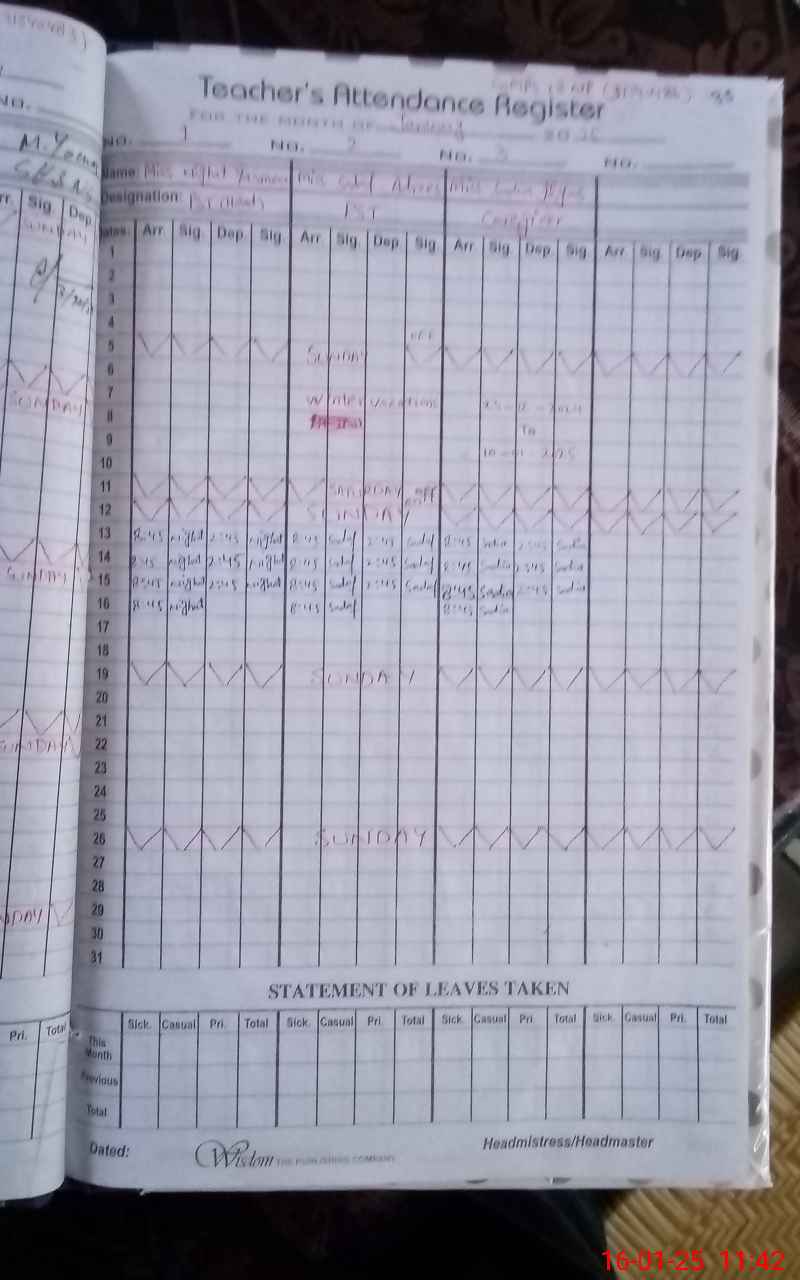 Teacher's Attendance Register
FOR THE MONTH OF January 20 25
NO. 1 NO. 2 NO. 3 NO.
Name: Miss Miss Miss
Designation: PST (Head) PST Caregiver
Dates: Arr. Sig. Dep. Sig. Arr. Sig. Dep. Sig. Arr. Sig. Dep. Sig. Arr. Sig. Dep. Sig.
1
2
3
4
5 SUNDAY OFF
6
7 Winter vacation
8
9 To
10
11 SATURDAY OFF
12 SUNDAY
13 8:45 night 2:45 night 8:45 Sadaf 2:45 Sadaf 8:45 Sadia 2:45 Sadia
14 8:45 night 2:45 night 8:45 Sadaf 2:45 Sadaf 8:45 Sadia 2:45 Sadia
15 8:45 night 2:45 night 8:45 Sadaf 2:45 Sadaf 8:45 Sadia 2:45 Sadia
16 8:45 night 8:45 Sadaf 8:45 Sadia
17
18
19 SUNDAY
20
21
22
23
24
25
26 SUNDAY
27
28
29
30
31
STATEMENT OF LEAVES TAKEN
Sick. Casual Pri. Total Sick. Casual Pri. Total Sick. Casual Pri. Total Sick. Casual Pri. Total
This Month
Previous
Total
Dated: Headmistress/Headmaster
Wisdom THE PUBLISHING COMPANY
NO.
Sig. Dep.
SUNDAY
SUNDAY
SUNDAY
SUNDAY
Pri. Total
16-01-25 11:42